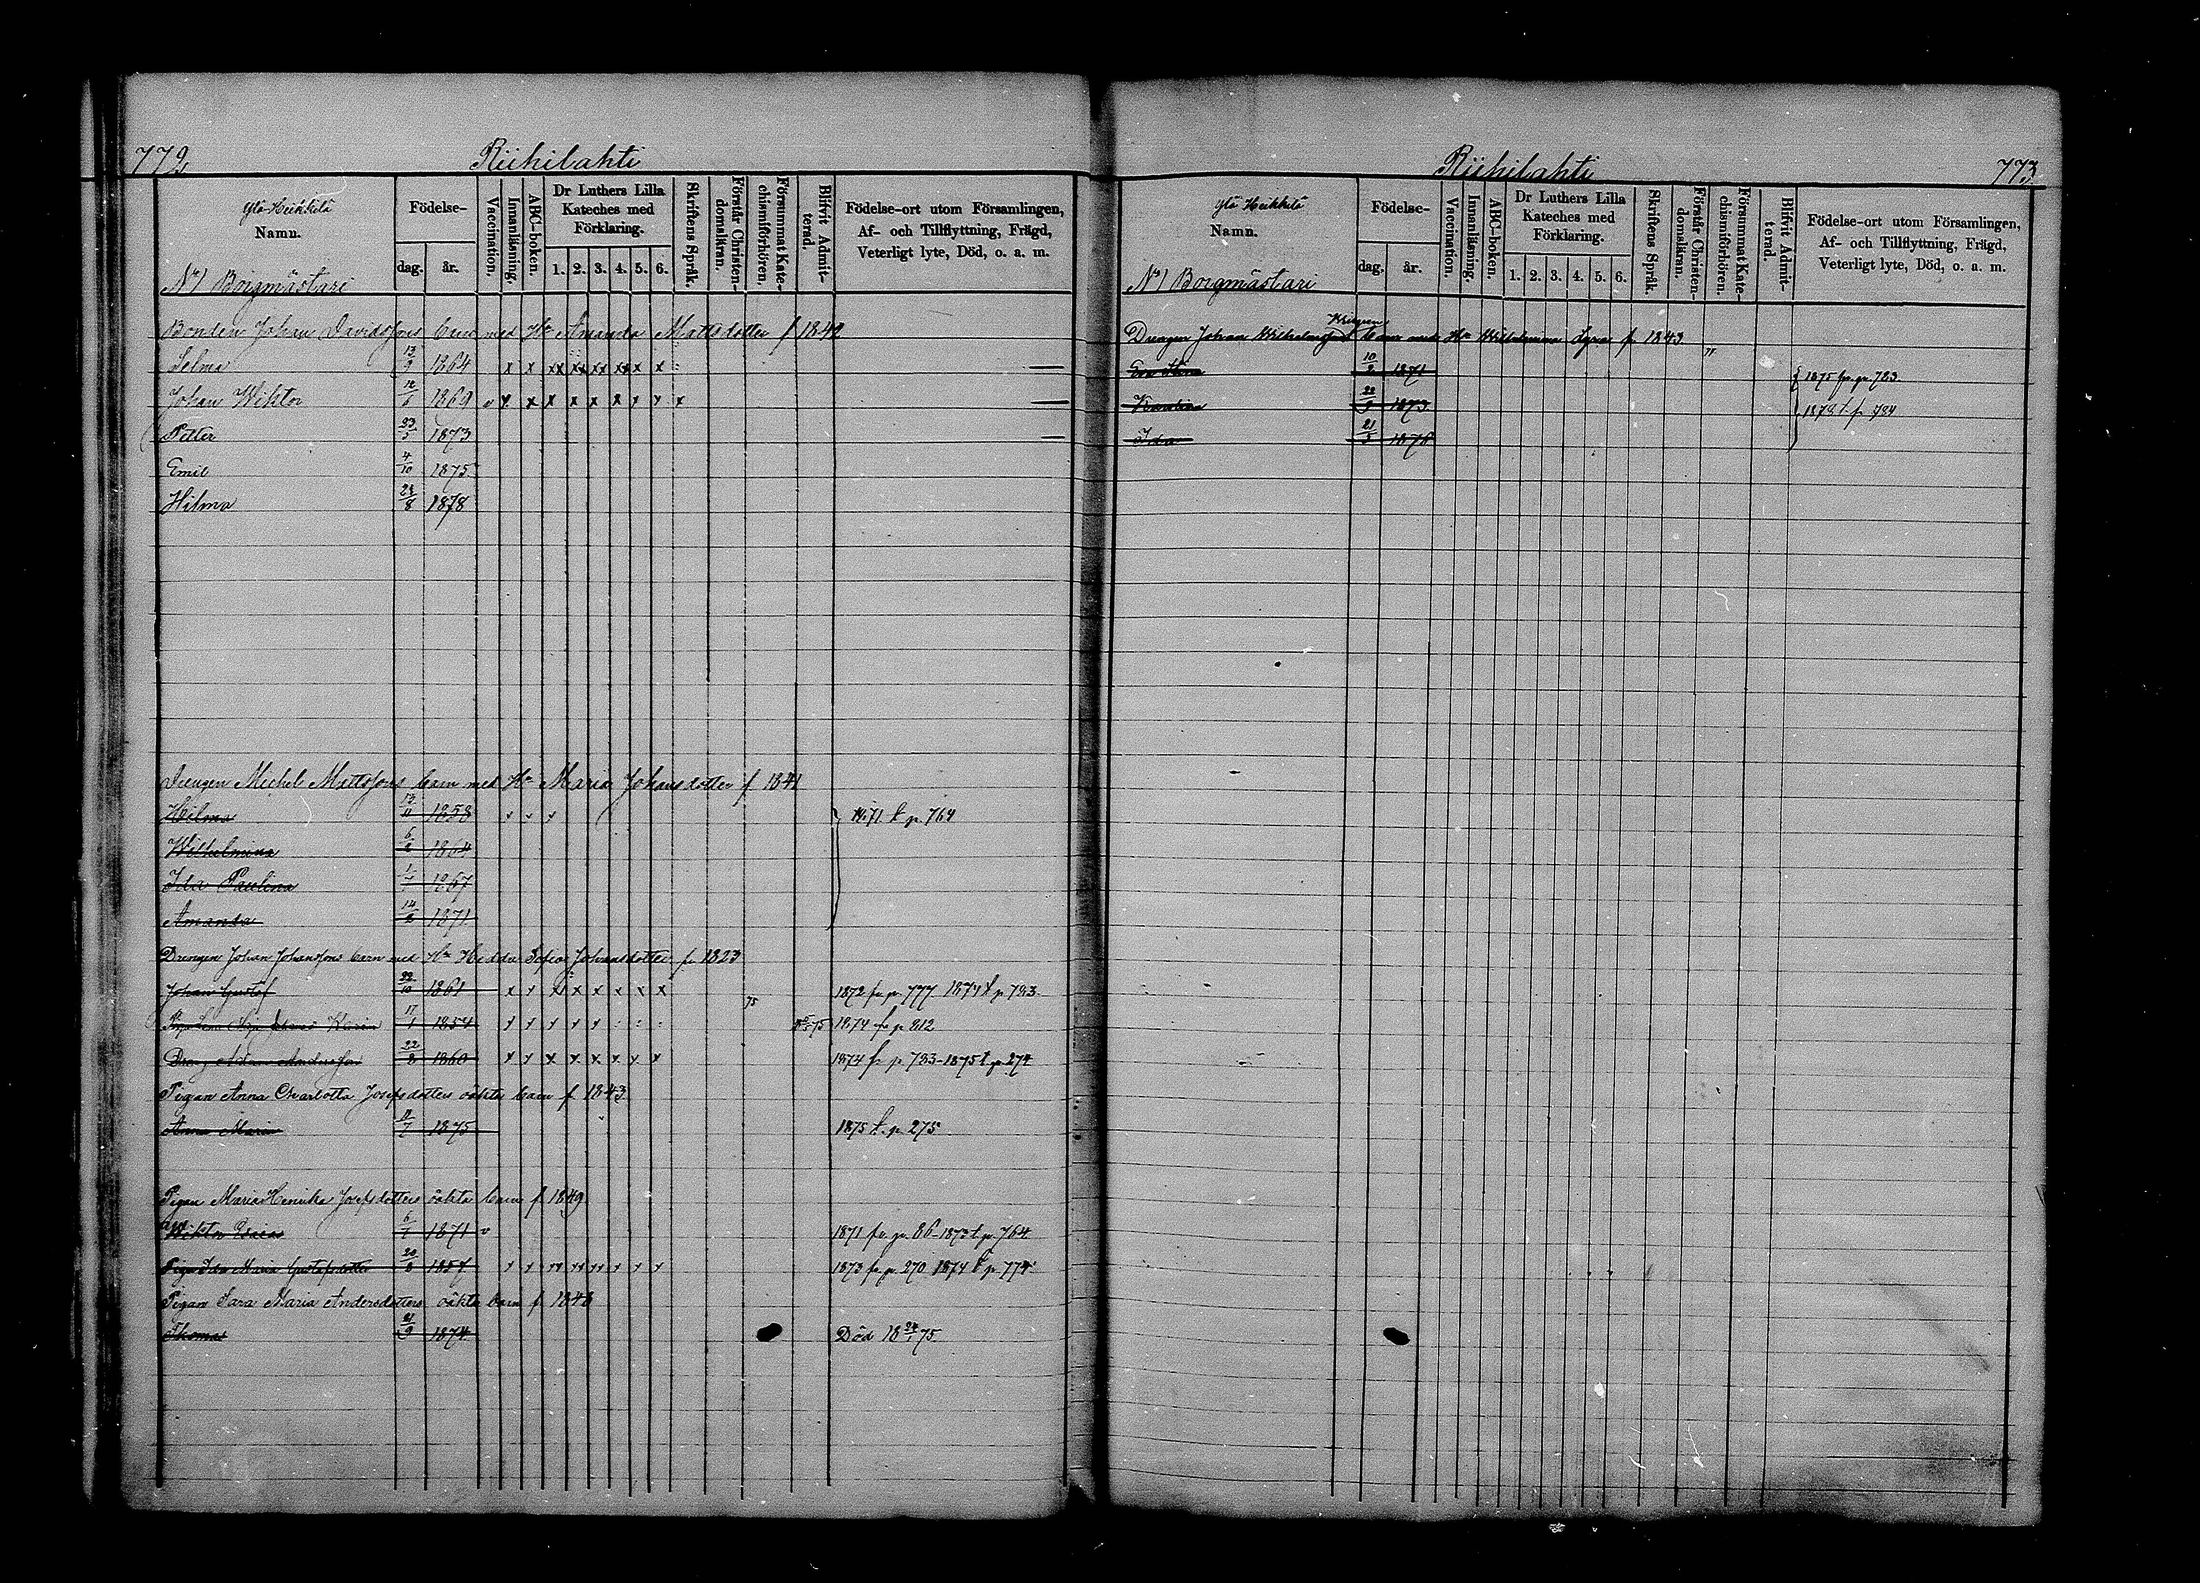 772.
Riihilahti
Ylö-Heikkilä
Namn.
Födelse-
dag. år.
Vaccination.
Innanläsning.
ABC-boken.
Dr Luthers Lilla Kateches med Förklaring.
1. 2. 3. 4. 5. 6.
Skriftens Språk.
Förstår Christendomsläran.
Försummat Katechismiförhören.
Blifvit Admitterad.
Födelse-ort utom Församlingen,
Af- och Tillflyttning, Frägd,
Veterligt lyte, Död, o. a. m.
No 1 Borgmästari
Bonden Johan Davidssons barn med Hu Amanda Mattsdotter f 1842
Selma 13/9 1864 x x xx xx xx xx x x —
Johan Wiktor 1869 v x x x x x x x x x —
Petter 23/5 1873 —
Emil 4/10 1875
Hilma 24/8 1878
Drengen Michel Mattssons barn med Hu Maria Johansdotter f 1841
Hilma 1858 1871 t p. 764
Wilhelmina 1864
Ida Paulina 1867
Amanda 1871
Drengen Johan Johanssons barn med Hu Hedda Sofia Johansdotter f. 1823
Johan Gustaf 22/10 1861 x x x x x x x x 75 1872 fr. p. 777. 1874 t p 793.
17/1 1854 1874 fr p 812
Dreng Adam Andersson 22/8 1860 x x x x x x x x 1874 fr p. 783-1875 t p. 274
Pigan Anna Charlotta Josefsdotters oäkta barn f. 1843
Anna Maria 1875 1875 t. p. 275
Pigan Maria Henrika Josefsdotters oäkta barn f 1849
Wiktor 6/7 1871 v 1871 fr. p. 86-1873 t p. 764
Piga Ida Maria Gustafsdotter 20/8 1857 1873 fr p. 270 1874 t p. 774
Pigan Sara Maria Andersdotters oäkta barn f. 1848
Thomas 21/9 1874 Död 18 24/1 75
Riihilahti
773
Ylö Heikkilä
Namn.
Födelse-
dag. år.
Vaccination.
Innanläsning.
ABC-boken.
Dr Luthers Lilla Kateches med Förklaring.
1. 2. 3. 4. 5. 6.
Skriftens Språk.
Förstår Christendomsläran.
Försummat Katechismiförhören.
Blifvit Admitterad.
Födelse-ort utom Församlingen,
Af- och Tillflyttning, Frägd,
Veterligt lyte, Död, o. a. m.
No 1 Borgmästari
Drengen Johan Wilhelmsson barn med Hu Wilhelmina f. 1843
Eva Stina 10/2 1871 1875 fr. p. 783
Karolina 1873 1879 t. p. 784
Ida 21/5 1876